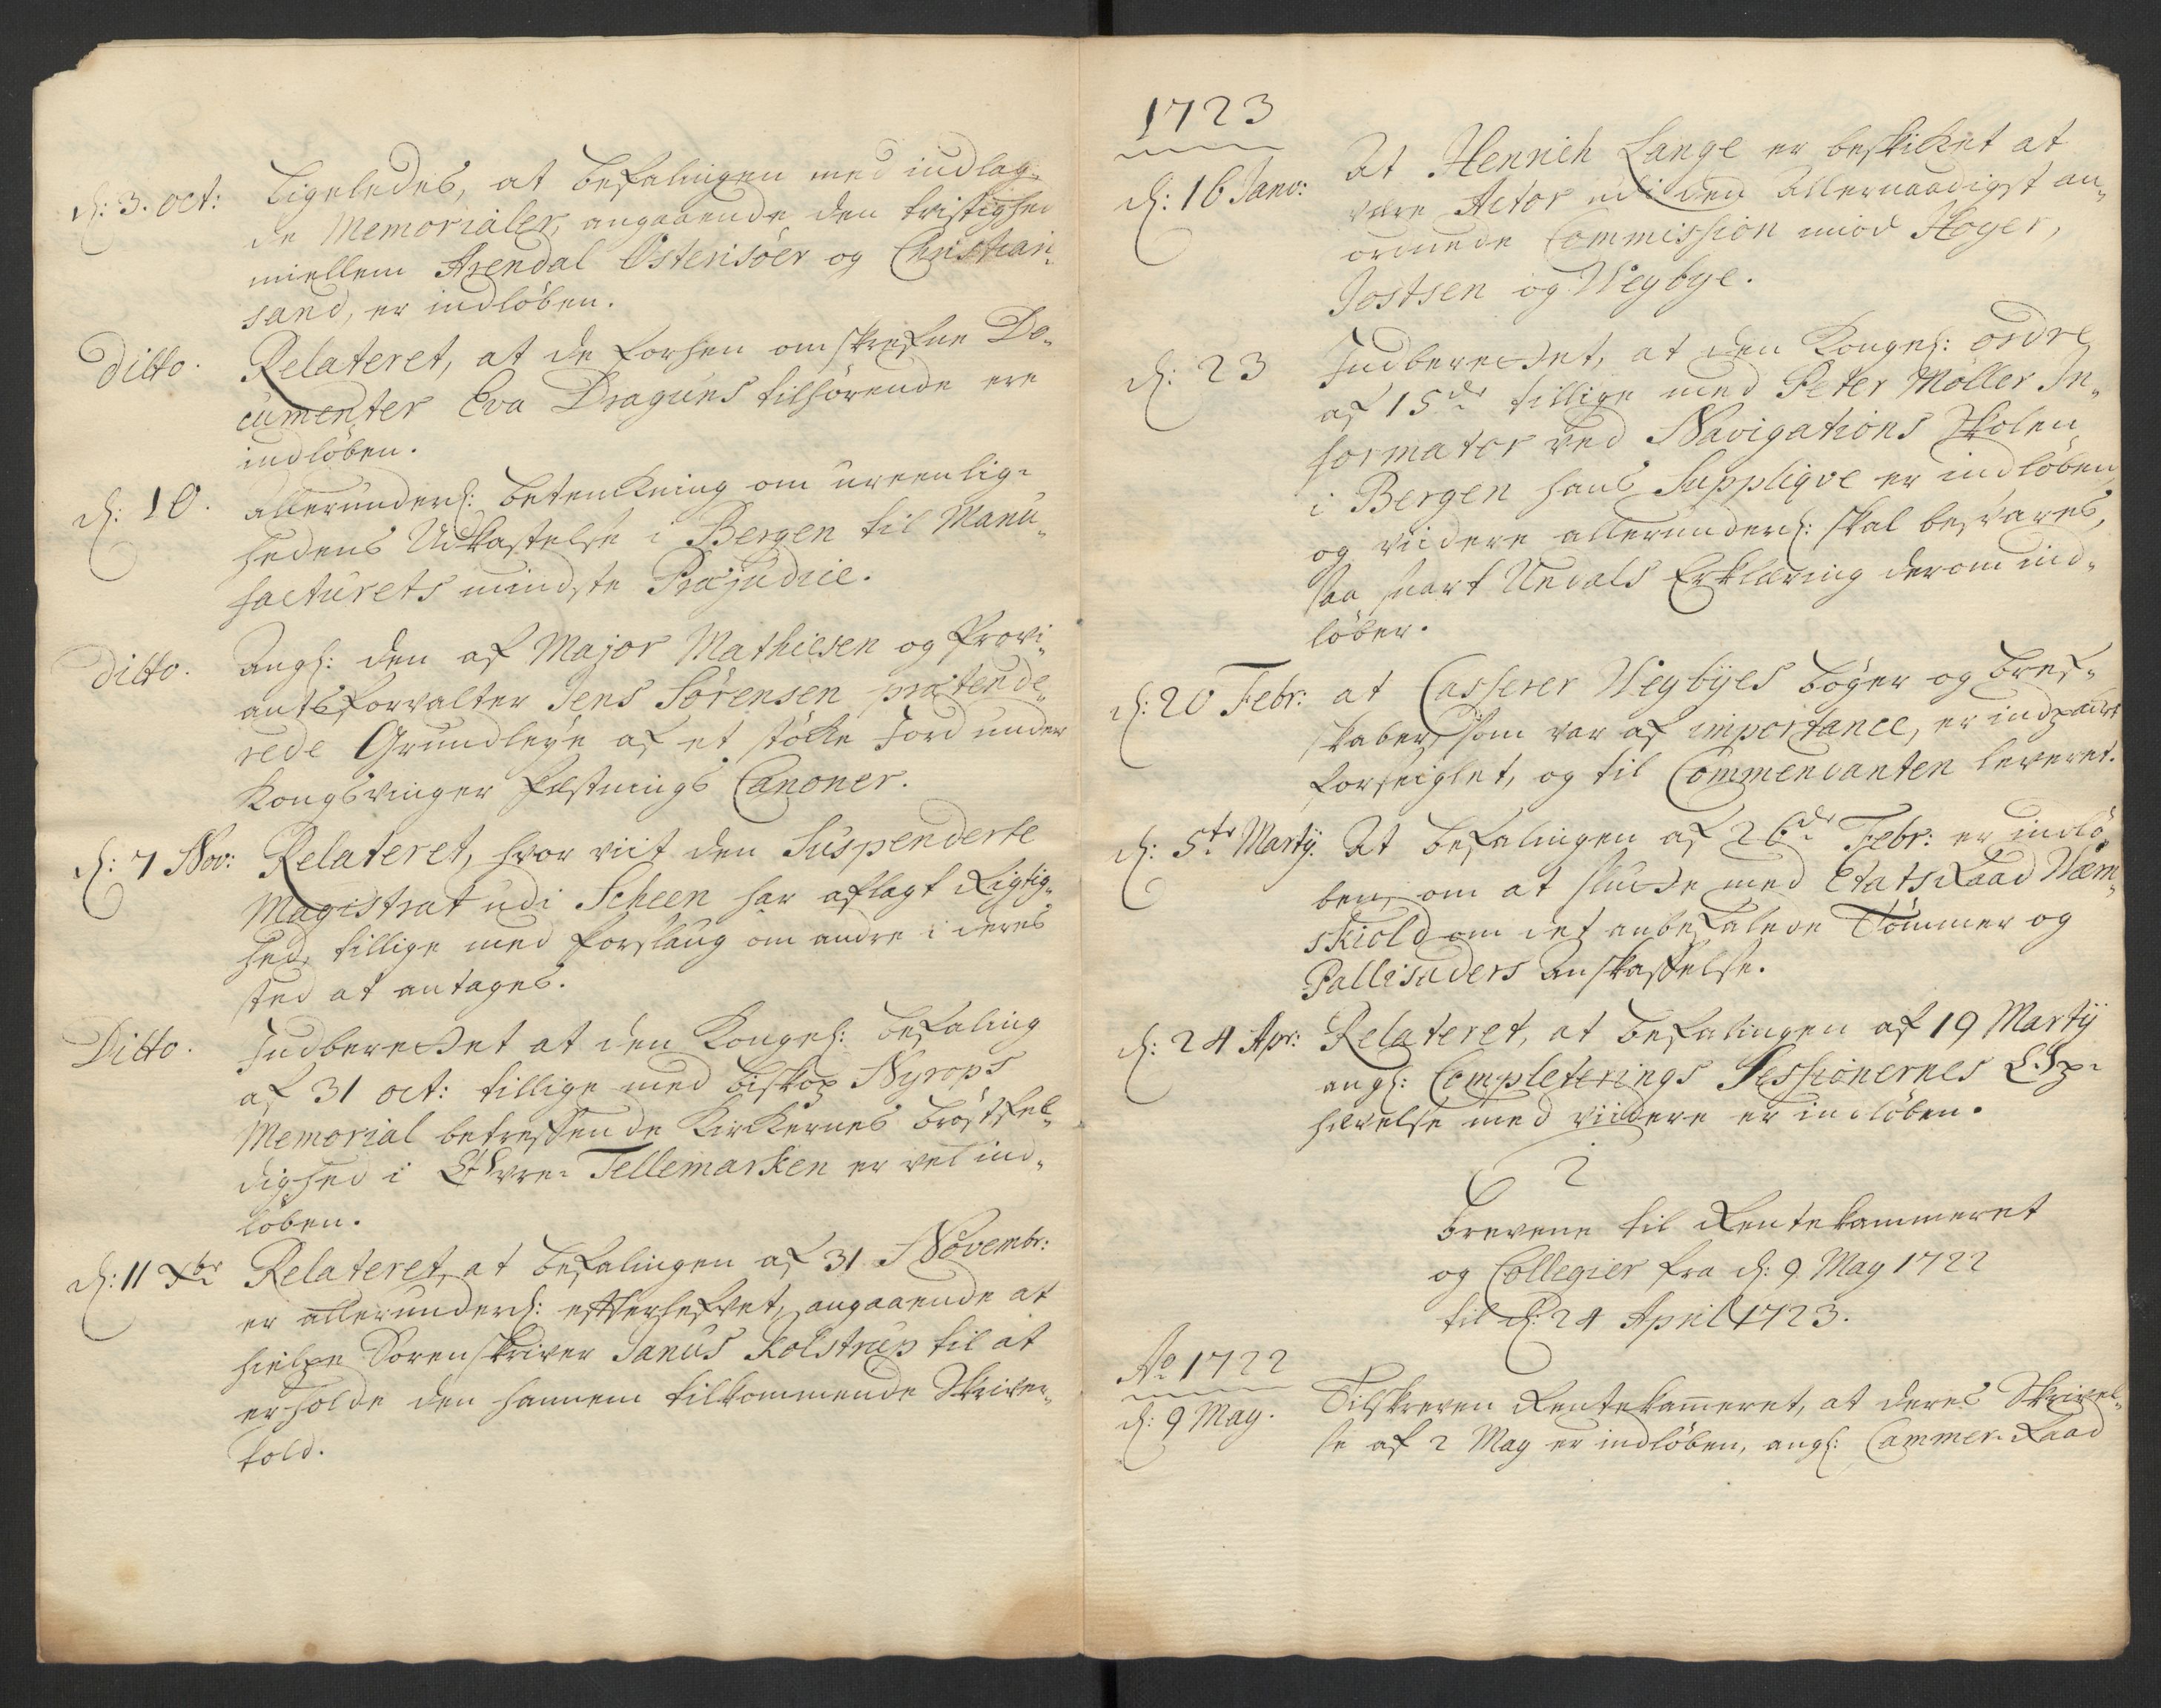 d: 3. Oct: Ligeledes, at befalingen med indlag-
de Memorialer, angaaende den tvistighed
mellem Arendal Østerisöer og Christian-
sand, er indlöben.
ditto. Relateret, at de forhen omskrefne Do-
cumenter Eva Draguns tilhörende ere
indlöben.
d: 10. allerunderd: betenkning om ureenlig-
hedens Udkastelse i Bergen til Manu-
facturets mindste Præjudice.
ditto. angl: den af Major Mathiesen og Provi-
antsforvalter Jens Sörensen prætende-
rede Grundleye af et støcke Jord under
Kongsvinger festnings Canoner.
d: 7 Nov: Relateret, hvor viit den Suspenderte
Magistrat udi Scheen har aflagt Rigtig-
hed, tillige med forslaug om andre i deres
sted at antages.
Ditto. Indberettet at den Kongel: befaling
af 31 Oct: tillige med biskop Nyrops
Memorial betreffende Kirkernes bröstfel-
dighed i Øvre Tellemarken er vel ind-
löben.
d: 11 Xbr Relateret, at befalingen af 31 Novembr:
er allerunderd: efterlefvet, angaaende at
hielpe Sorenskriver Janus Kolstrup til at
erholde den hannem tilkommende Skriver-
told.
1723
d: 16 Janv: At Henrich Lange er beskicket at
være Actor udi den allernaadigst an-
ordnede Commission imod Hoyer,
Jostsen og Weybye.
d: 23 Indberettet, at den Kongel: ordre
af 15de tillige med Peter Möller In-
formator ved Navigations Skolen
i Bergen hans Supplique er indlöben,
og viidere allerunderd: skal besvares,
saa snart Undals Erklæring derom ind-
löber.
d: 20 Febr: at Casserer Weybyes böger og bref-
skaber, som var af importance, er indpacket
forseiglet, og til Commendanten leveret.
d: 5te Martÿ. At befalingen af 26de Febr: er indlö-
ben, om at slutte med Etats Raad Wærn-
skiold om det anbefalede Tömmer og
Pallisaders anskaffelse.
d: 24 Apr: Relateret, at befalingen af 19 Martÿ
angl: Completerings Sessionernes Op-
hævelse med viidere er indlöben.
2
Brevene til Rentekammeret
og Collegier fra d: 9 May 1722
til d: 24 April 1723.
Ao 1722
d: 9 May. Tilskreven Rentekam̄eret, at deres Skrivel-
se af 2 May er indlöben, angl: Cammer-Raad